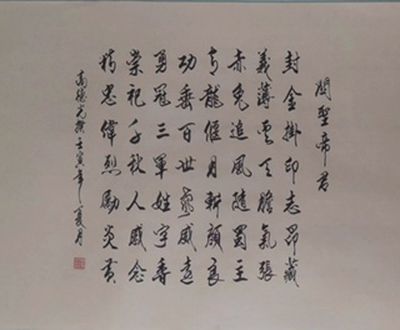 關聖帝君
封金掛印志昂藏
義薄雲天膽氣張
赤兔追風隨蜀主
青龍偃月斬顏良
功垂百世聲威遠
勇冠三軍姓字香
崇祀千秋人感念
精忠偉烈勵炎黃
高德光撰壬寅年夏月